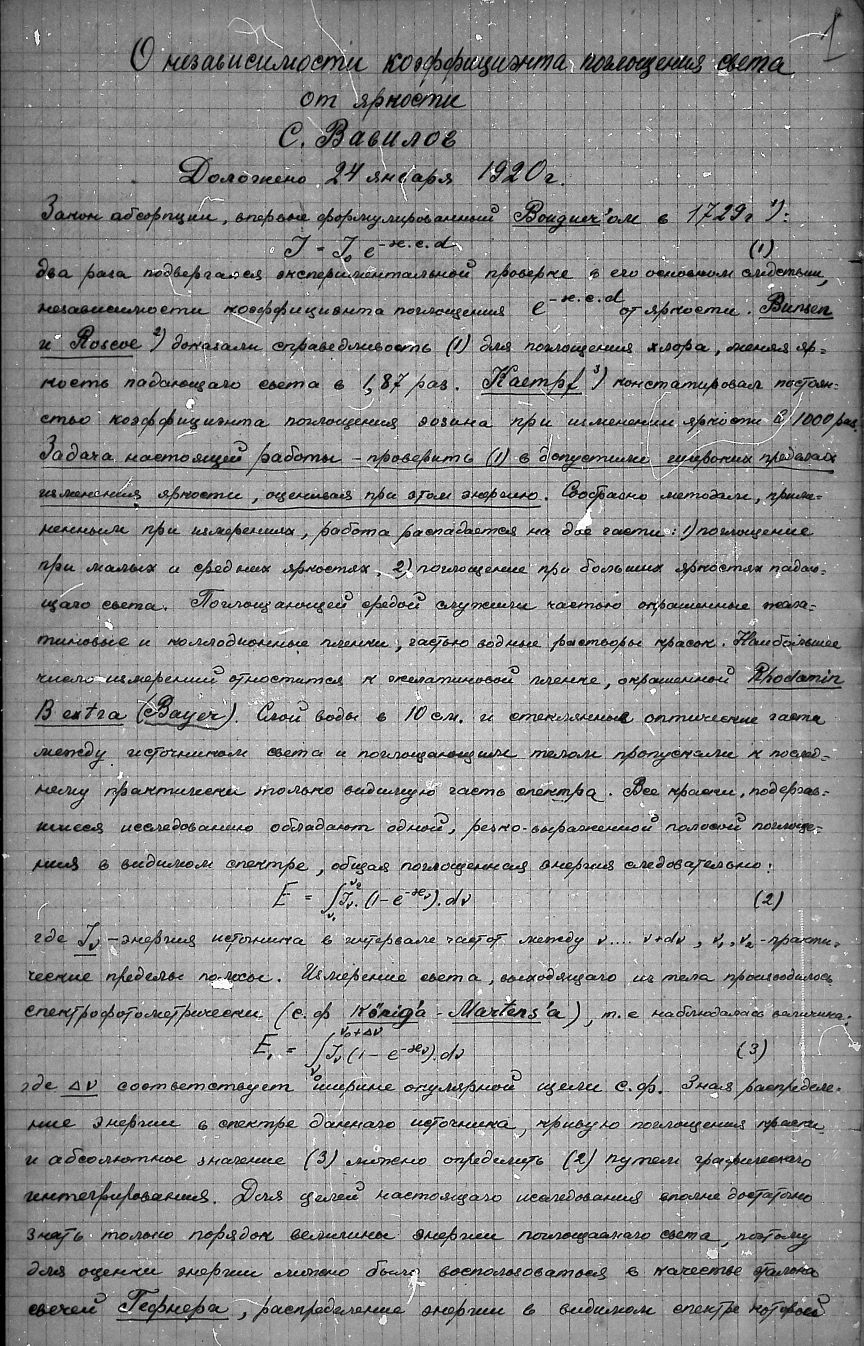 1
О независимости коэффициэнта поглощения света
от яркости
С. Вавилов
Доложено 24 января 1920 г.
Закон абсорпции, впервые формулированный Bouguer'ом в 1729 г 1):
J = J₀ e^{-ϰ.c.d} (1)
два раза подвергался экспериментальной проверке в его основном следствии,
независимости коэффициэнта поглощения e^{-ϰ.c.d} от яркости. Bunsen
и Roscoe 2) доказали справедливость (1) для поглощения хлора, меняя яр=
кость падающаго света в 1,87 раз. Kaempf 3) констатировал постоян=
ство коэффициэнта поглощения эозина при изменении яркости в 1000 раз.
Задача настоящей работы – проверить (1) в допустимо широких пределах
изменения яркости, оценивая при этом энергию. Сообразно методам, приме=
ненным при измерениях, работа распадается на две части: 1) поглощение
при малых и средних яркостях, 2) поглощение при больших яркостях падаю=
щаго света. Поглощающей средой служили частью окрашенные жела=
тиновые и коллодионные пленки, частью водные растворы красок. Наибольшее
число измерений относится к желатиновой пленке, окрашенной Rhodamin
B extra (Bayer). Слой воды в 10 см. и стеклянные оптические части
между источником света и поглощающим телом пропускали к послед=
нему практически только видимую часть спектра. Все краски, подверг=
шиеся исследованию обладают одной, резко-выраженной полосой поглоще=
ния в видимом спектре, общая поглощенная энергия следовательно:
E = ∫_{ν₁}^{ν₂} J_ν. (1-e^{-ϰ_ν}).dν (2)
где J_ν – энергия источника в интервале частот между ν.... ν+dν, ν₁, ν₂ - практи=
ческие пределы полосы. Измерение света, выходящаго из тела производилось
спектрофотометрически (с.ф König'a - Martens'a), т.е наблюдалась величина:
E₁ = ∫_{ν₀}^{ν₀+Δν} J_ν (1-e^{-ϰ_ν}).dν (3)
где Δν соответствует ширине окулярной щели с.ф. Зная распределе=
ние энергии в спектре даннаго источника, кривую поглощения краски
и абсолютное значение (3) можно определить (2) путем графическаго
интегрирования. Для целей настоящаго исследования вполне достаточно
знать только порядок величины энергии поглощаемаго света, поэтому
для оценки энергии можно было воспользоваться в качестве эталона
свечей Гефнера, распределение энергии в видимом спектре которой